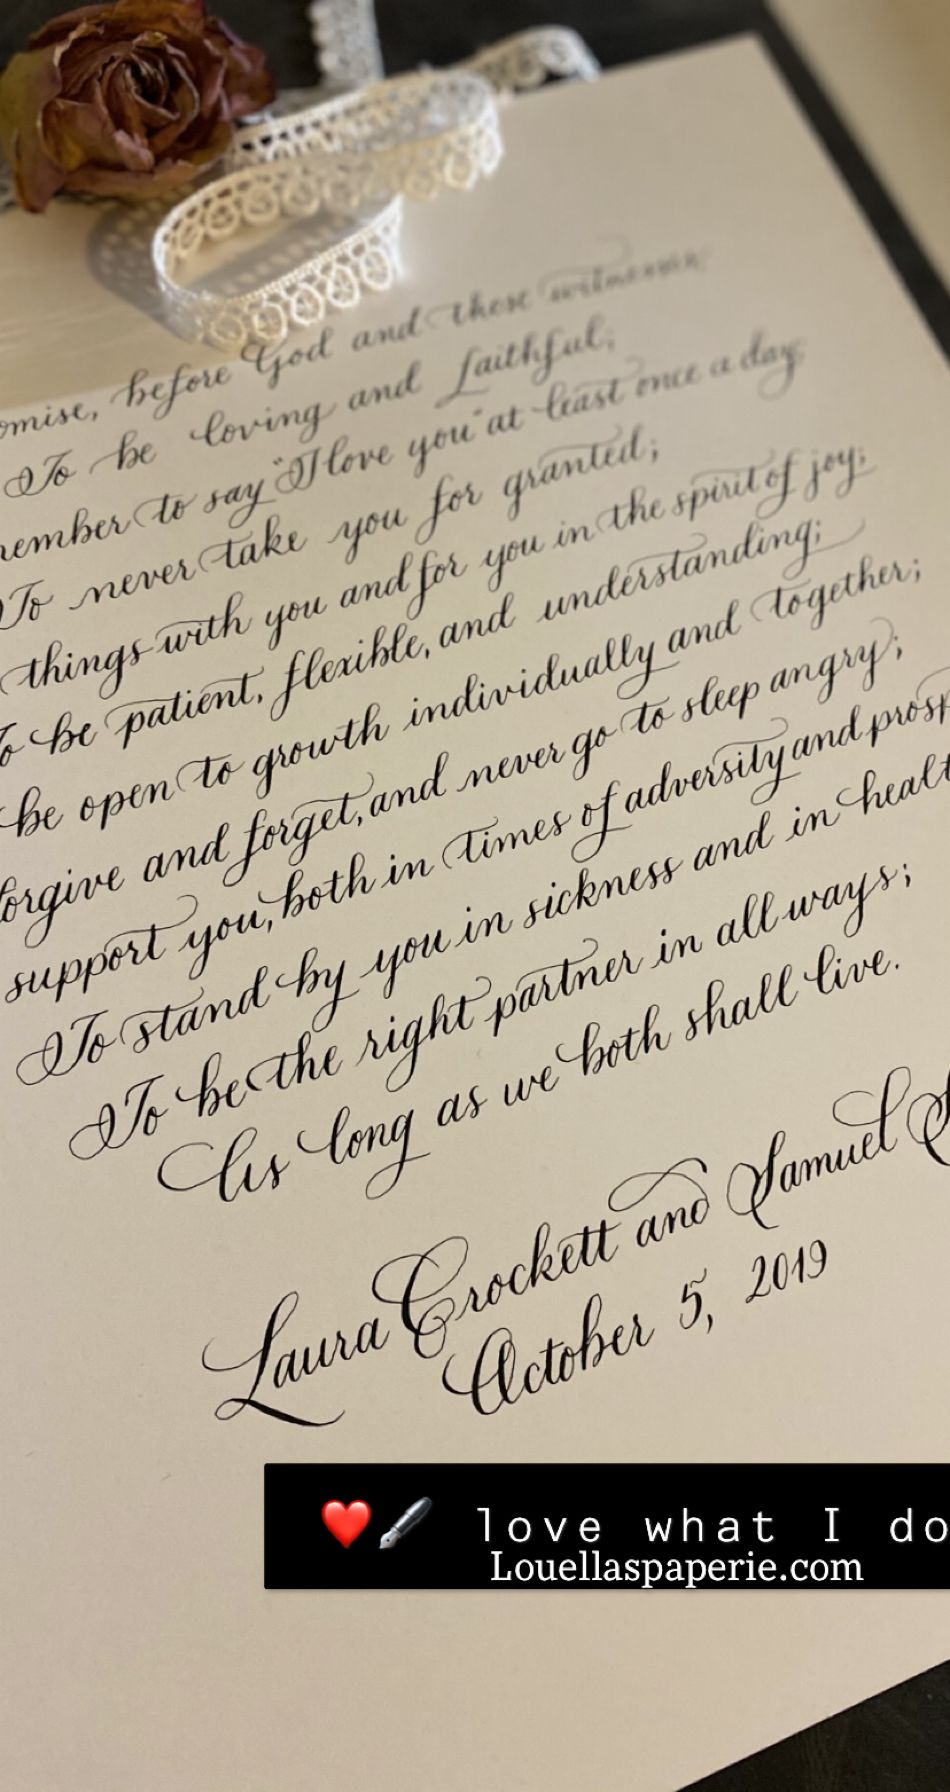 omise, before God and these witnesses:
To be loving and faithful;
member to say "I love you" at least once a day;
To never take you for granted;
things with you and for you in the spirit of joy;
To be patient, flexible, and understanding;
be open to growth individually and together;
forgive and forget, and never go to sleep angry;
support you, both in times of adversity and prosp
To stand by you in sickness and in healt
To be the right partner in all ways;
As long as we both shall live.
Laura Crockett and Samuel S
October 5, 2019
❤️🖋️ love what I do
Louellaspaperie.com